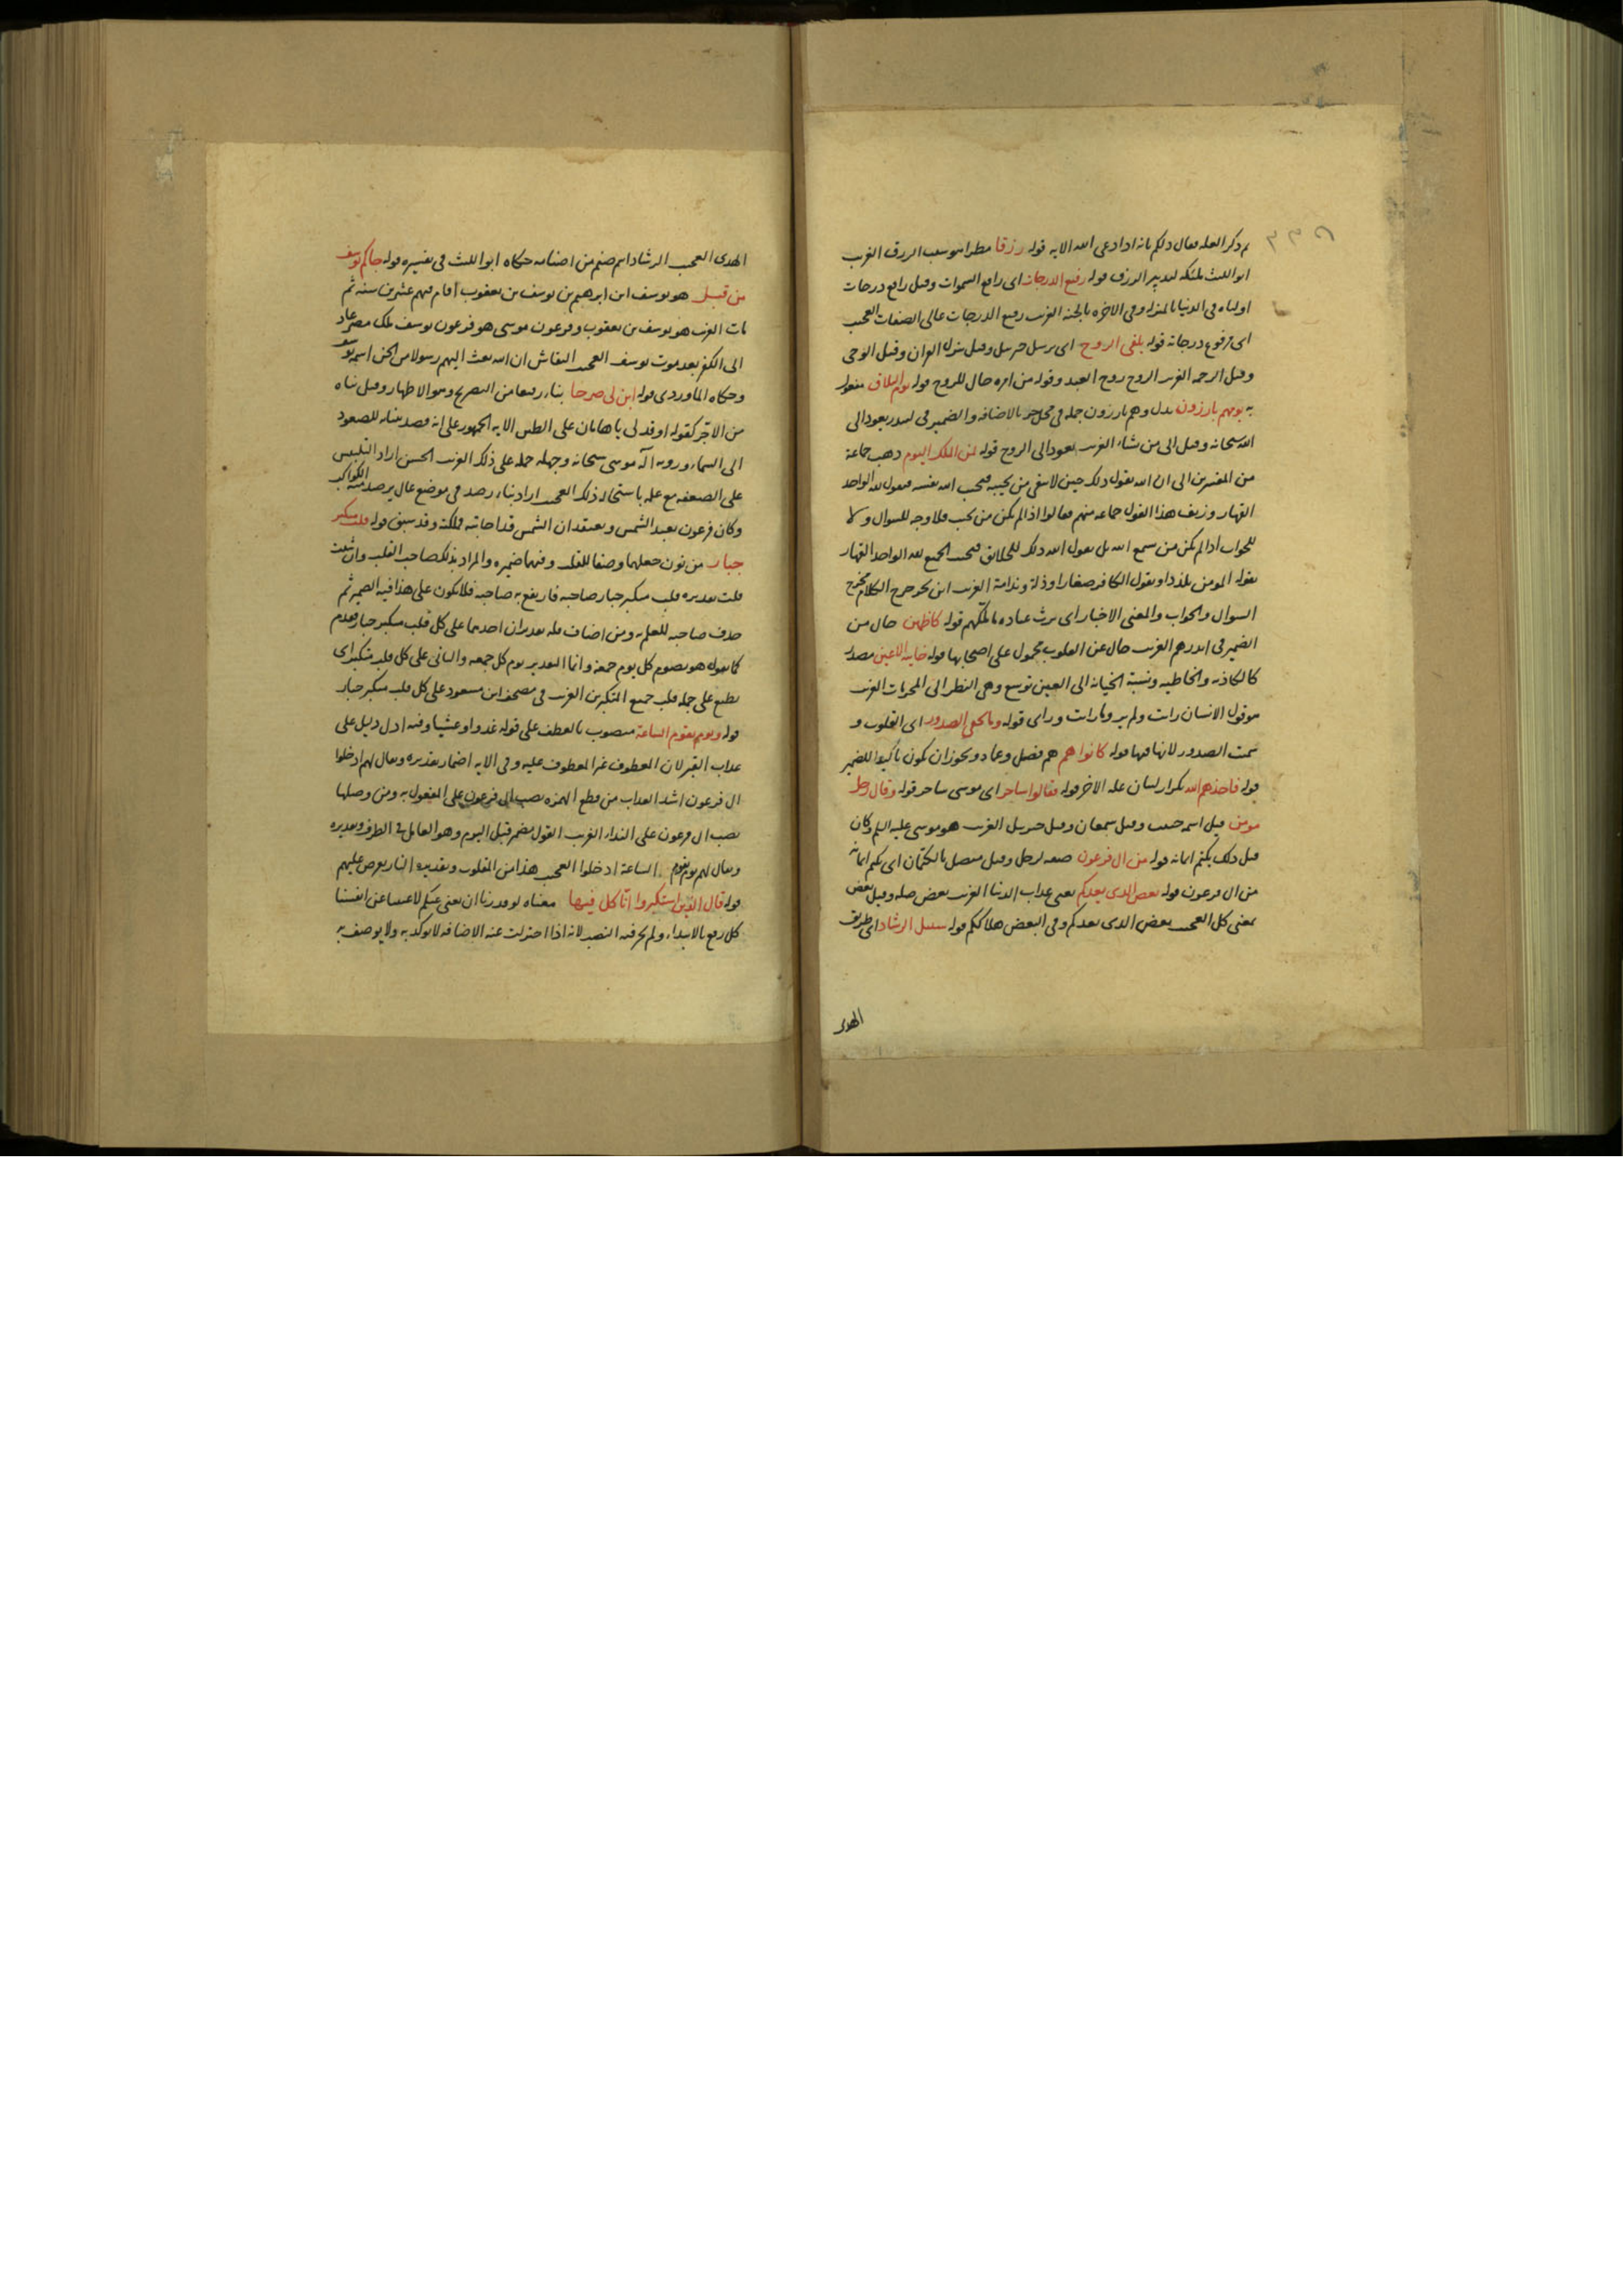 ٣٣٥
ثم ذكر العلة فقال ذلكم بانه اذا دعى الله الاية قوله رزقا مطرا هو سبب الرزق الغريب
ابو الليث ملئكة لتدبير الرزق قوله رفيع الدرجات اى رافع السموات وقيل رافع درجات
اوليائه فى الدنيا بالمنزلة وفى الاخرة بالجنة الغريب رفيع الدرجات عالى الصفات العجيب
اى مرفوع درجاته قوله يلقى الروح اى يرسل جبريل وقيل ينزل القران وقيل الوحى
وقيل الرحمة الغريب الروح روح العبد وقوله من امره حال للروح قوله يوم التلاق مفعول
به يومهم بارزون بدل وهم بارزون جملة فى محل جر بالاضافة والضمير فى لينذر يعود الى
الله سبحانه وقيل الى من يشاء الغريب يعود الى الروح قوله لمن الملك اليوم ذهب جماعة
من المفسرين الى ان الله يقول ذلك حين لا يبقى من يجيبه فيجيب الله نفسه فيقول لله الواحد
القهار وزيف هذا القول جماعة منهم فقالوا اذا لم يكن من يجيب فلا وجه للسوال ولا
للجواب اذا لم يكن من يسمع الله بل يقول الله ذلك للخلائق فيجيب الجميع لله الواحد القهار
يقوله المومن تلذذا ويقول الكافر صغارا وذلة وندامة الغريب ابن بحر خرج الكلام مخرج
السوال والجواب والمعنى الاخبار اى يرث عباده ما ملكهم قوله كاظمين حال من
الضمير فى انذرهم الغريب حال عن القلوب محمول على اصحابها قوله خاينة الاعين مصدر
كالكاذبه والخاطيه ونسبة الخيانة الى العين توسع وهى النظر الى المحرمات الغريب
هو قول الانسان رايت ولم ير وما رايت وراى قوله وما تخفى الصدور اى القلوب و
سميت الصدور لانها فيها قوله كانوا هم هم فصل وعماد ويجوز ان يكون تاكيدا للضمير
قوله فاخذهم الله تكرار لبيان علة الاخر قوله فقالوا ساحر اى موسى ساحر قوله وقال رجل
مومن قيل اسمه حبيب وقيل سمعان وقيل حزبيل الغريب هو موسى عليه السلم وكان
قبل ذلك يكتم ايمانه قوله من ال فرعون صفة لرجل وقيل متصل بالكتمان اى يكتم ايمانه
من ال فرعون قوله بعض الذى يعدكم يعنى عذاب الدنيا الغريب بعض صلة وقيل بعض
بمعنى كل العجيب بعض الذى يعدكم وفى البعض هلاككم قوله سبيل الرشاد اى طريق
الهدى
الهدى العجيب الرشاد اسم صنم من اصنامه حكاه ابو الليث فى تفسيره قوله جاكم يوسف
من قبل هو يوسف ابن ابرهيم بن يوسف بن يعقوب اقام فيهم عشرين سنة ثم
مات الغريب هو يوسف بن يعقوب وفرعون موسى هو فرعون يوسف ملك مصر عاد
الى الكفر بعد موت يوسف العجيب النقاش ان الله بعث اليهم رسولا من الجن اسمه يوسف
وحكاه الماوردى قوله ابن لى صرحا بناء رفيعا من التصريح وهو الاظهار وقيل بناه
من الاجر كقوله اوقد لى يا هامان على الطين الاية الجمهور على انه قصد ببنائه للصعود
الى السماء ورؤية اله موسى سبحانه وجهله حمله على ذلك الغريب الحسن اراد التلبيس
على الضعفة مع علمه باستحالة ذلك العجيب اراد بناء رصد فى موضع عال يرصد منه الكواكب
وكان فرعون يعبد الشمس ويعتقد ان الشمس قد اجابته مملكته وقد سبق قوله قلب متكبر
جبار من نون جعلهما وصفا للقلب وفيهما ضميره والمراد بذلك صاحب القلب وان شئت
قلت تقديره قلب متكبر جبار صاحبه فارتفع به صاحبه فلا يكون على هذا فيه الضمير ثم
حذف صاحبه للعلم به ومن اضاف فله تقديران احدهما على كل قلب متكبر جبار فقدم
كما تقول هو يصوم كل يوم جمعة وانما التقدير يوم كل جمعه والثانى على كل قلب متكبر اى
يطبع على جملة قلب جميع المتكبرين الغريب فى مصحف ابن مسعود على كل قلب متكبر جبار
قوله ويوم تقوم الساعة منصوب بالعطف على قوله غدوا وعشيا وفيه ادل دليل على
عذاب القبر لان المعطوف غير المعطوف عليه وفى الاية اضمار تقديره ويقال لهم ادخلوا
ال فرعون اشد العذاب من قطع الهمزة نصب ال فرعون على المفعول به ومن وصلها
نصب ال فرعون على النداء الغريب القول مضمر قبل اليوم وهو العامل فى الظرف وتقديره
ويقال لهم يوم تقوم الساعة ادخلوا العجيب هذا من المقلوب وتقديره النار يعرض عليهم
قوله قال الذين استكبروا انا كل فيها معناه لو قدرنا ان نغنى عنكم لاغنينا عن انفسنا
كل رفع بالابتداء ولم يجز فيه النصب لانه اذا اختزلت عنه الاضافة لا يوكد به ولا يوصف به